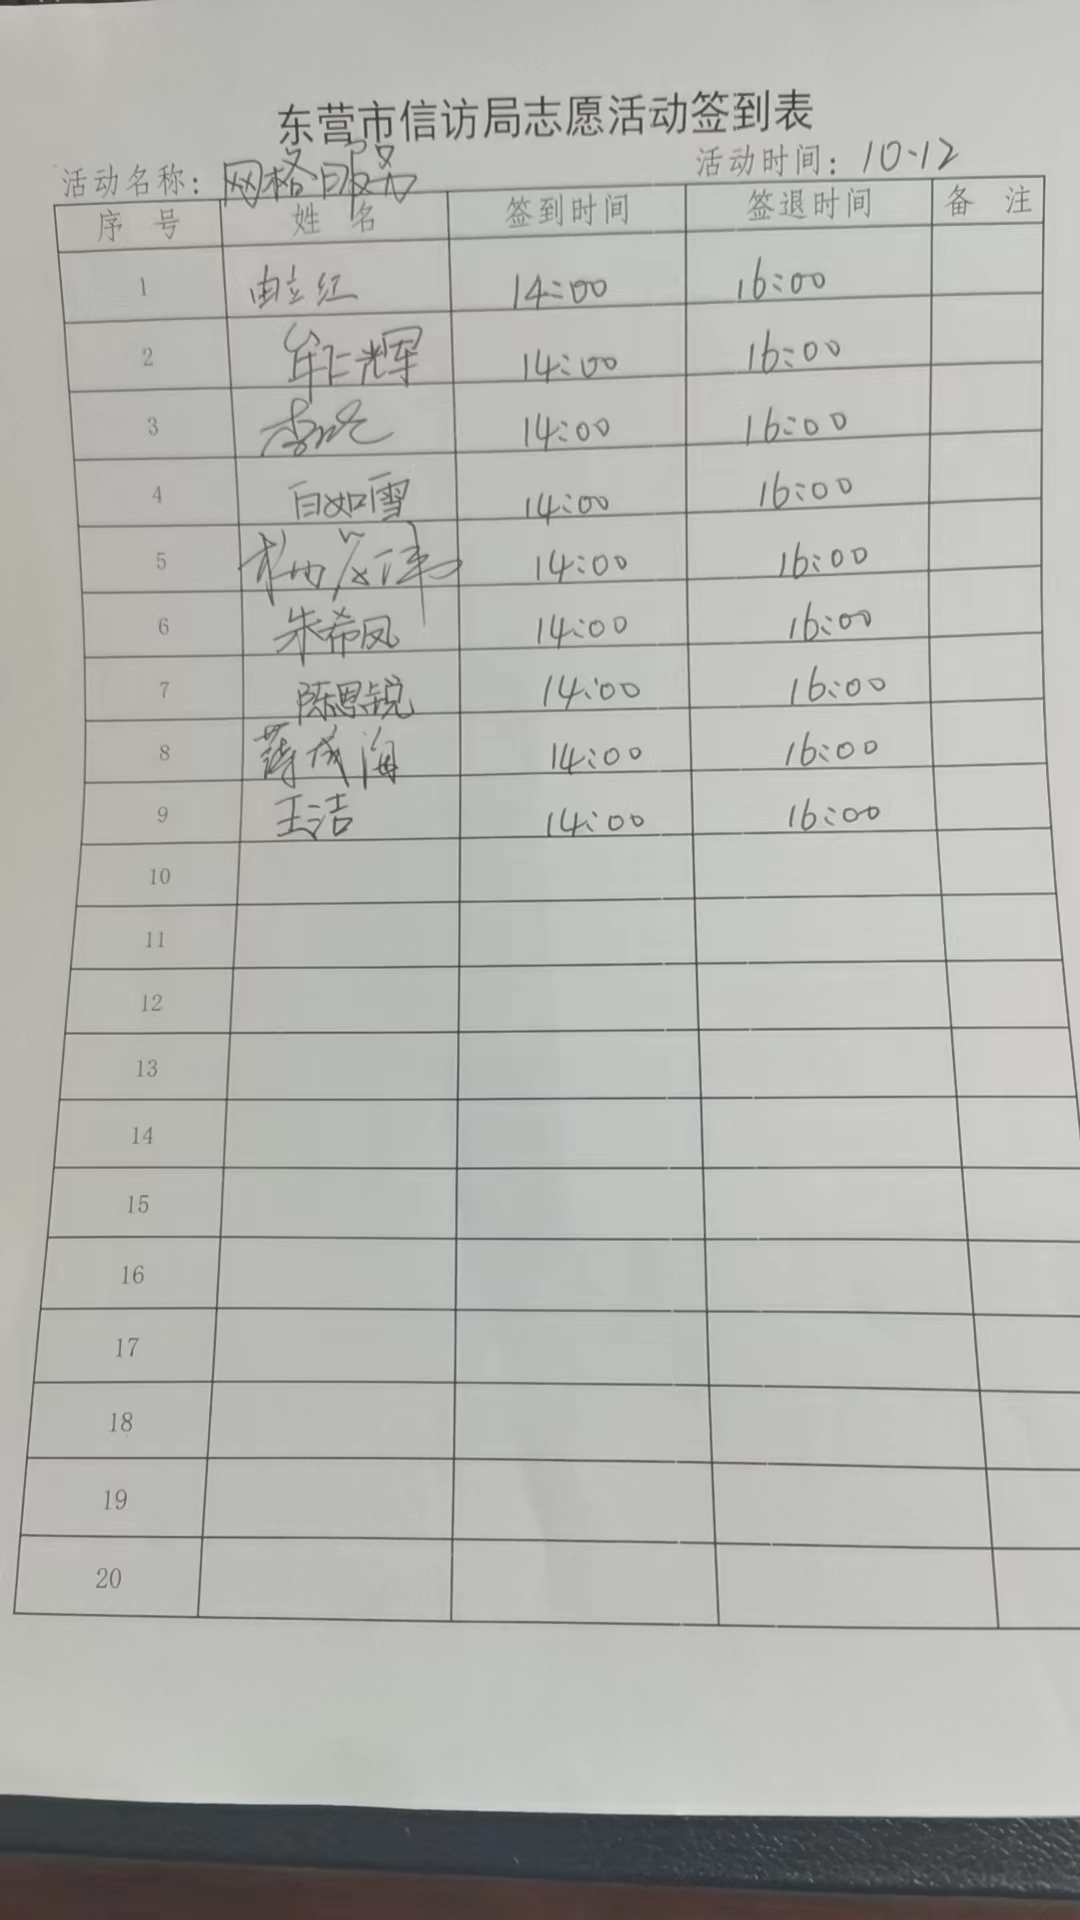 东营市信访局志愿活动签到表
活动名称：网格服务 活动时间：10.12
序 号 姓 名 签到时间 签退时间 备 注
1 由立红 14:00 16:00
2 牟仁辉 14:00 16:00
3 李 14:00 16:00
4 白如雪 14:00 16:00
5 14:00 16:00
6 朱希凤 14:00 16:00
7 陈思锐 14:00 16:00
8 薄成海 14:00 16:00
9 王洁 14:00 16:00
10
11
12
13
14
15
16
17
18
19
20